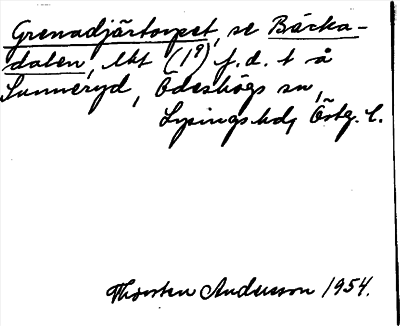 Grenadjärtorpet, se Bäcka-
dalen, lht (1°) f.d. t å
Sunneryd, Ödeshögs sn,
Lysings hd, Östg. l.
Thorsten Andersson 1954.